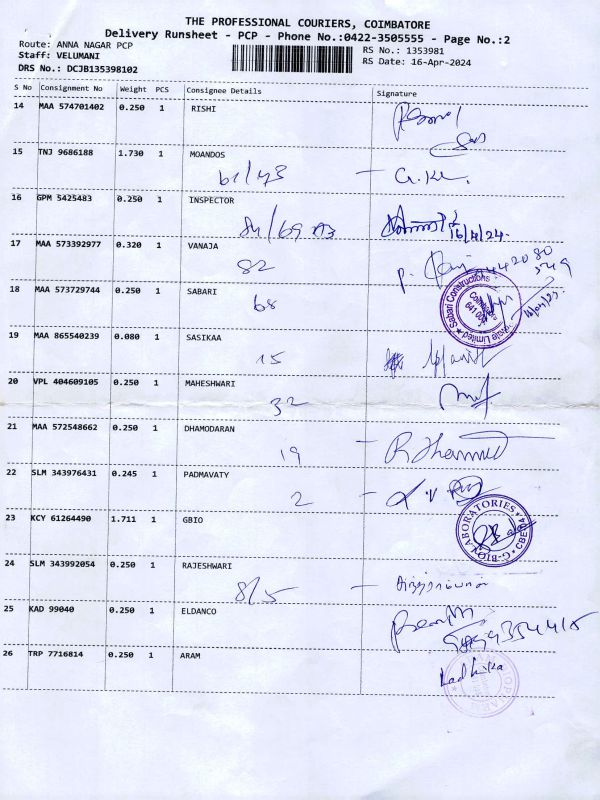 THE PROFESSIONAL COURIERS, COIMBATORE
Delivery Runsheet - PCP - Phone No.:0422-3505555 - Page No.:2
Route: ANNA NAGAR PCP RS No.: 1353981
Staff: VELUMANI RS Date: 16-Apr-2024
DRS No.: DCJB135398102
S No Consignment No Weight PCS Consignee Details Signature
14 MAA 574701402 0.250 1 RISHI
15 TNJ 9686188 1.730 1 MOANDOS
61/43
16 GPM 5425483 0.250 1 INSPECTOR
84/69 A3 16/4/24
17 MAA 573392977 0.320 1 VANAJA
82
18 MAA 573729744 0.250 1 SABARI
68 Sabari Constructions Private Limited
19 MAA 865540239 0.080 1 SASIKAA
15
20 VPL 404609105 0.250 1 MAHESHWARI
32
21 MAA 572548662 0.250 1 DHAMODARAN
19
22 SLM 343976431 0.245 1 PADMAVATY
2
23 KCY 61264490 1.711 1 GBIO
G-BIO LABORATORIES
24 SLM 343992054 0.250 1 RAJESHWARI
8/5
25 KAD 99040 0.250 1 ELDANCO
26 TRP 7716814 0.250 1 ARAM
Radhika